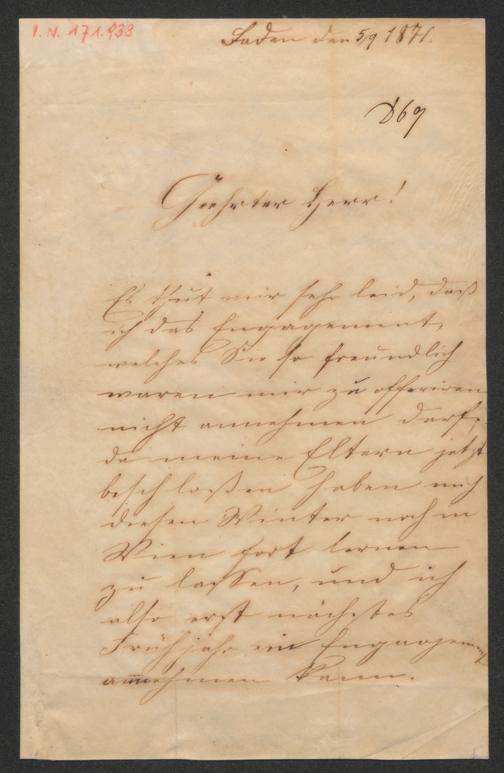 I. N. 171.933
Baden den 5/9 1871.
869
Geehrter Herr!
Es thut mir sehr leid, daß
ich das Engagement,
welches Sie so freundlich
waren mir zu offeriren
nicht annehmen darf,
da meine Eltern jetzt
beschloßen haben mich
diesen Winter noch in
Wien fort lernen
zu lassen, und ich
also erst nächstes
Frühjahr ein Engagement
annehmen kann.